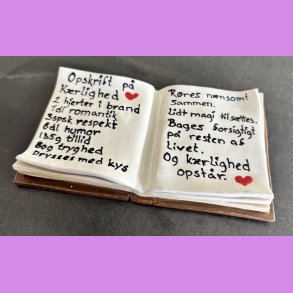 Opskrift på
Kærlighed
2 hjerter i brand
1dl romantik
3spsk respekt
8dl humor
135g tillid
80g tryghed
Drysses med kys
Røres nænsomt
sammen.
Lidt magi tilsættes.
Bages forsigtigt
på resten af
livet.
Og kærlighed
opstår.